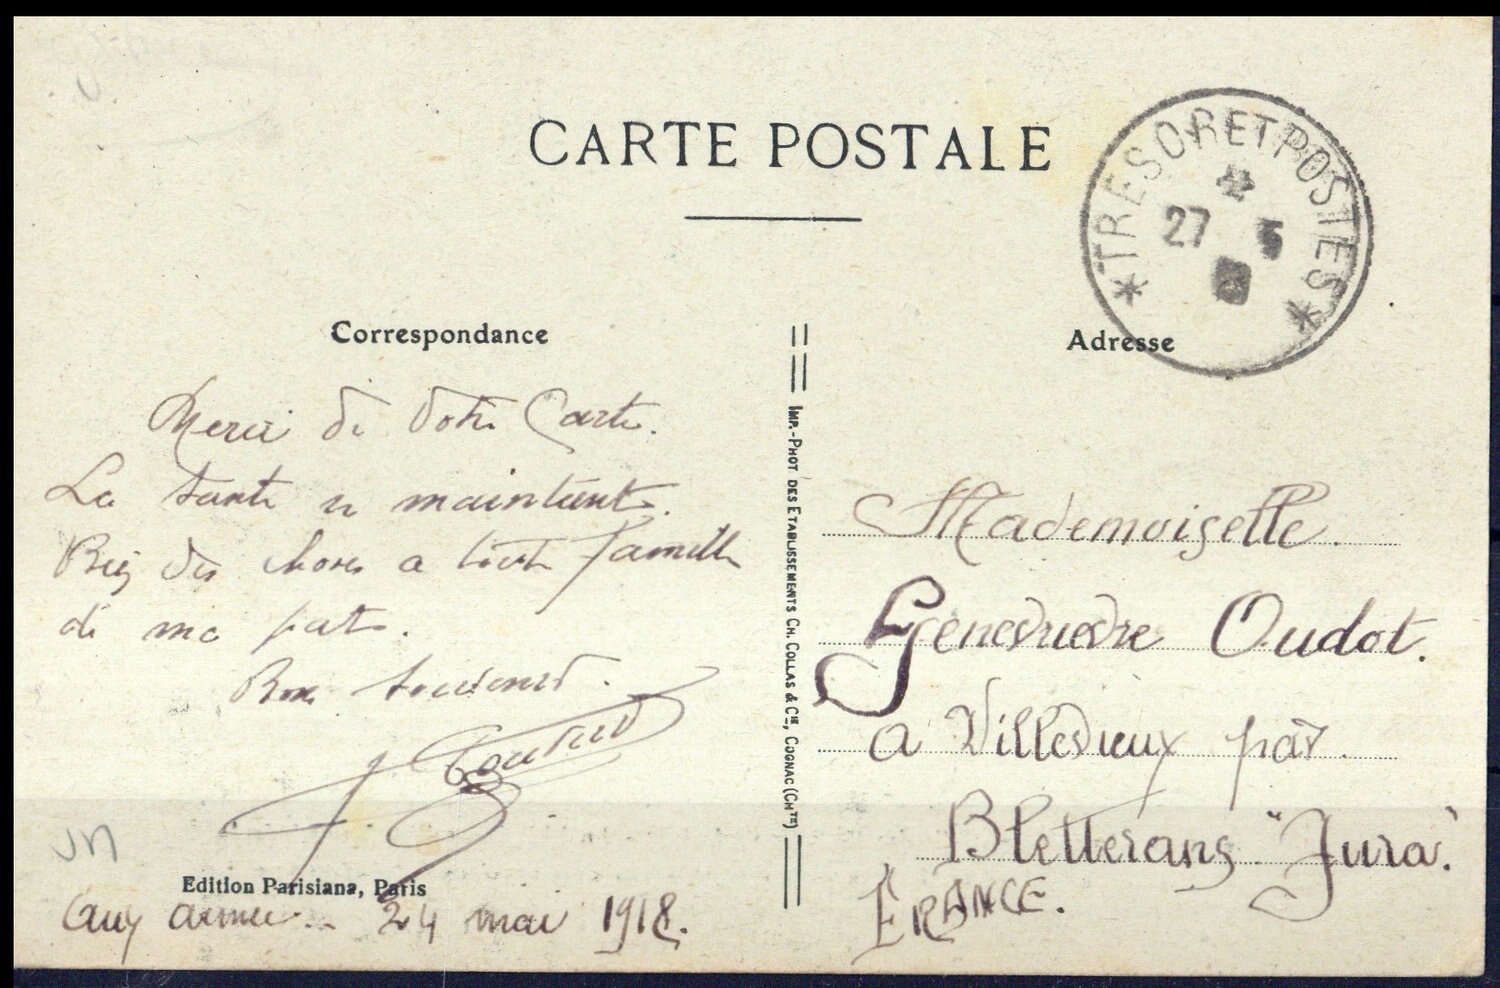 CARTE POSTALE
* TRESOR ET POSTES *
27 5
Correspondance
Adresse
Merci de votre Carte.
La santé se maintient.
Bien des choses a toute famille
de ma part.
Bons souvenirs.
Edition Parisiana, Paris
aux armées. 24 mai 1918.
IMP.-PHOT DES ETABLISSEMENTS CH. COLLAS & CIE, COGNAC (CHTE)
Mademoiselle.
Genevieve Oudot.
a Villevieux par
Bletterans "Jura".
FRANCE.